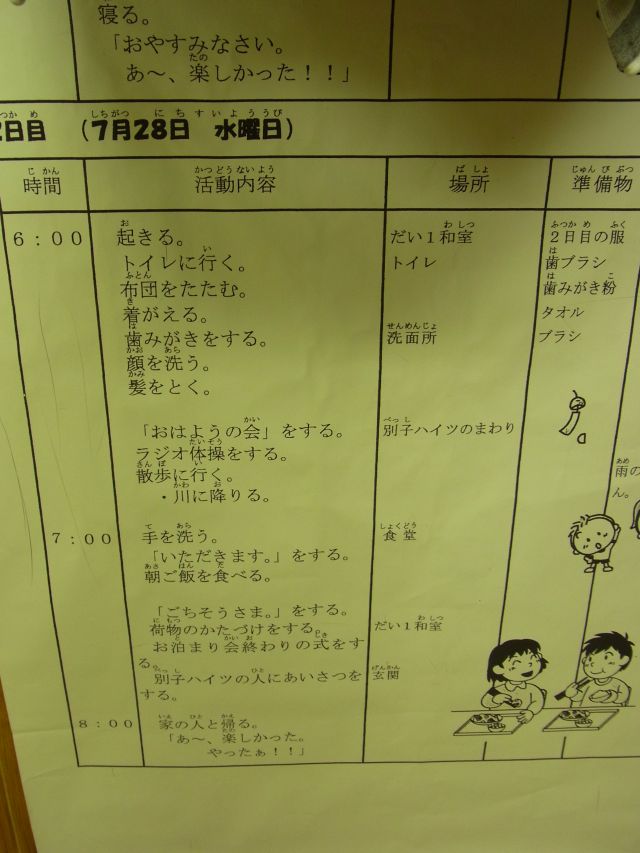 寝る。
「おやすみなさい。
あ～、楽しかった！！」
2日目 （7月28日 水曜日）
時間 活動内容 場所 準備物
6：00 起きる。 だい１和室 ２日目の服
トイレに行く。 トイレ 歯ブラシ
布団をたたむ。 歯みがき粉
着がえる。 タオル
歯みがきをする。 洗面所 ブラシ
顔を洗う。
髪をとく。
「おはようの会」をする。 別子ハイツのまわり
ラジオ体操をする。
散歩に行く。 雨の
・川に降りる。 ん。
7：00 手を洗う。 食堂
「いただきます。」をする。
朝ご飯を食べる。
「ごちそうさま。」をする。
荷物のかたづけをする。 だい１和室
お泊まり会終わりの式をす
る。
別子ハイツの人にあいさつを 玄関
する。
8：00 家の人と帰る。
「あ～、楽しかった。
やったぁ！！」